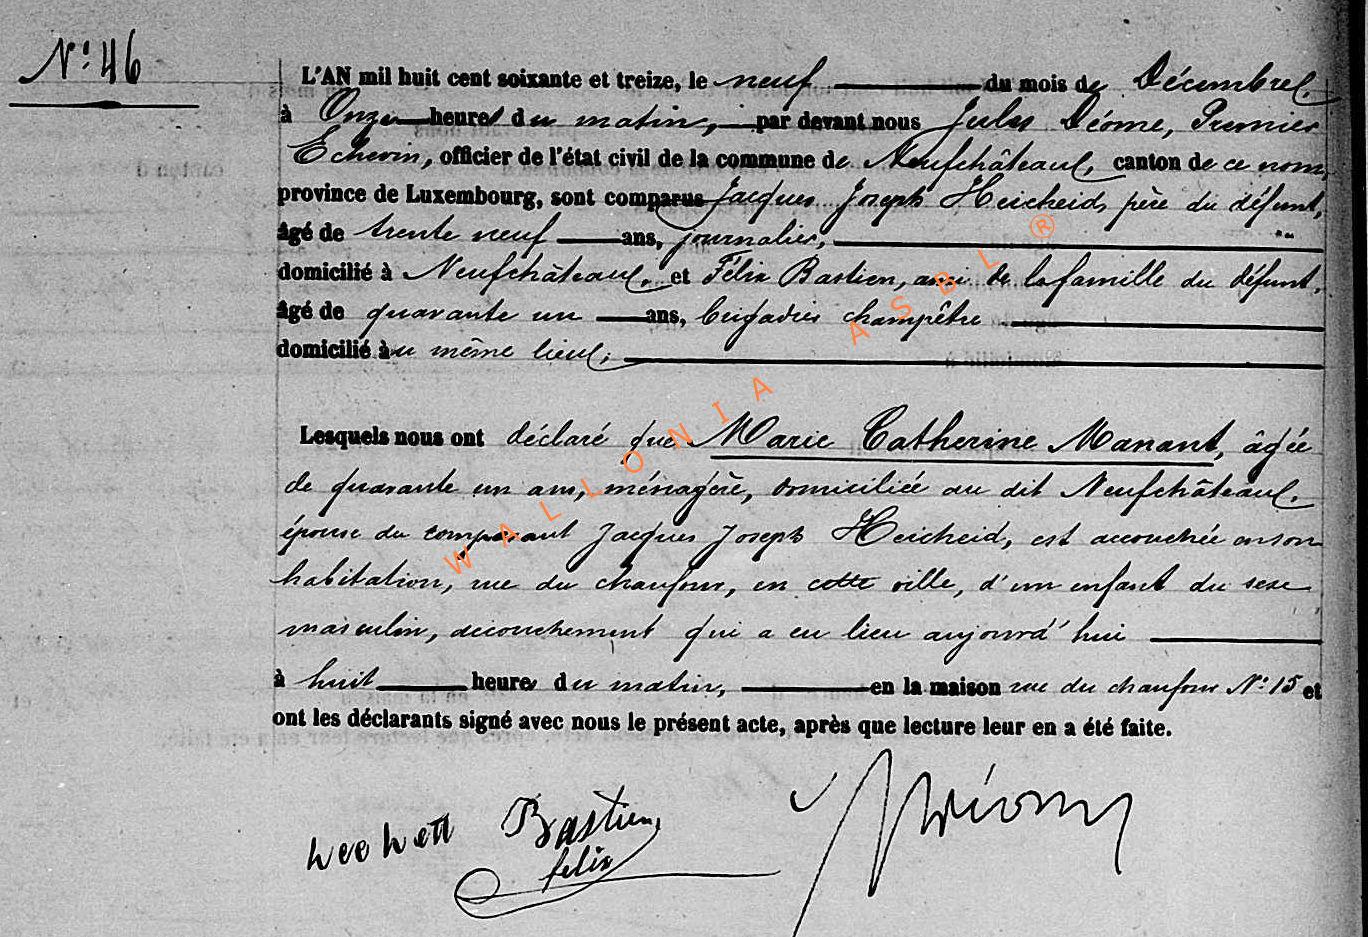 N.º 46
L'AN mil huit cent soixante et treize, le neuf du mois de Décembre,
à Onze heures du matin, par devant nous Jules Déome, Premier
Echevin, officier de l'état civil de la commune de Neufchâteau, canton de ce nom,
province de Luxembourg, sont comparus Jacques Joseph Heicheid, père du défunt,
âgé de trente neuf ans, journalier,
domicilié à Neufchâteau, et Félix Bastien, ami de la famille du défunt,
âgé de quarante un ans, brigadier champêtre
domicilié au même lieu,
Lesquels nous ont déclaré que Marie Catherine Manant, âgée
de quarante un ans, ménagère, domiciliée au dit Neufchâteau,
épouse du comparant Jacques Joseph Heicheid, est accouchée en son
habitation, rue du chaufour, en cette ville, d'un enfant du sexe
masculin, accouchement qui a eu lieu aujourd'hui
à huit heures du matin, en la maison rue du chaufour N.º 15 et
ont les déclarants signé avec nous le présent acte, après que lecture leur en a été faite.
Bastien
felix
JDéome
WALLONIA ASBL ®